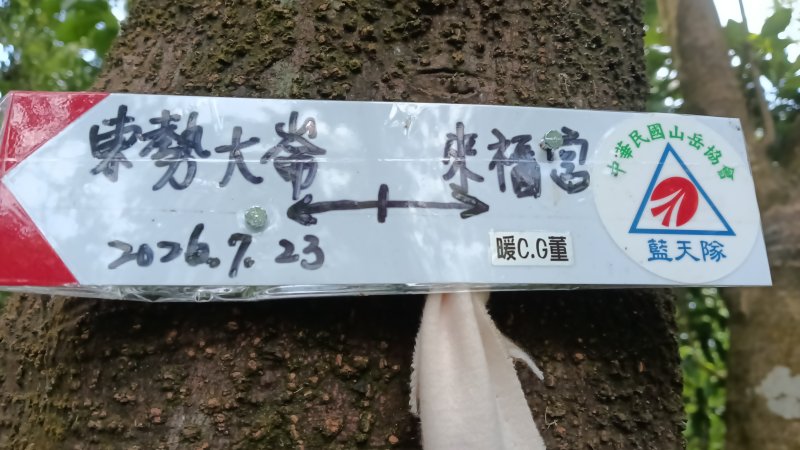 東勢大崙 ←|→ 來福宮
2026.7.23
暖C.G董
中華民國山岳協會
藍天隊